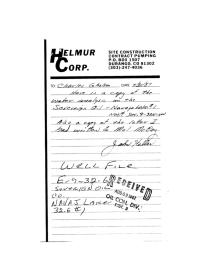 HELMUR
CORP.
SITE CONSTRUCTION
CONTRACT PUMPING
P.O. BOX 1507
DURANGO, CO 81302
(303)-247-4036
TO Charles Gholson DATE
Here is a copy of the
water analysis on the
Sovereign Oil - Navajo
Also a copy of the letter I
had written to Mel
John
WELL FILE
E-9-32-6
SOVEREIGN OIL
CO.
NAVAJ LAKE
32-6
RECEIVED
OIL CON. DIV.
DIST. 3